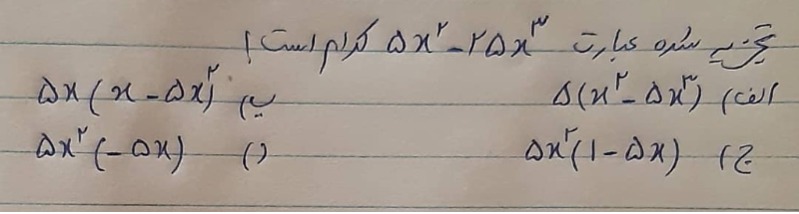 تجزیه شده عبارت ۵x^۲ - ۲۵x^۳ کدام است؟
الف) ۵(x^۲ - ۵x^۳) ب) ۵x(x - ۵x)^۲
ج) ۵x^۲(۱ - ۵x) د) ۵x^۲(-۵x)